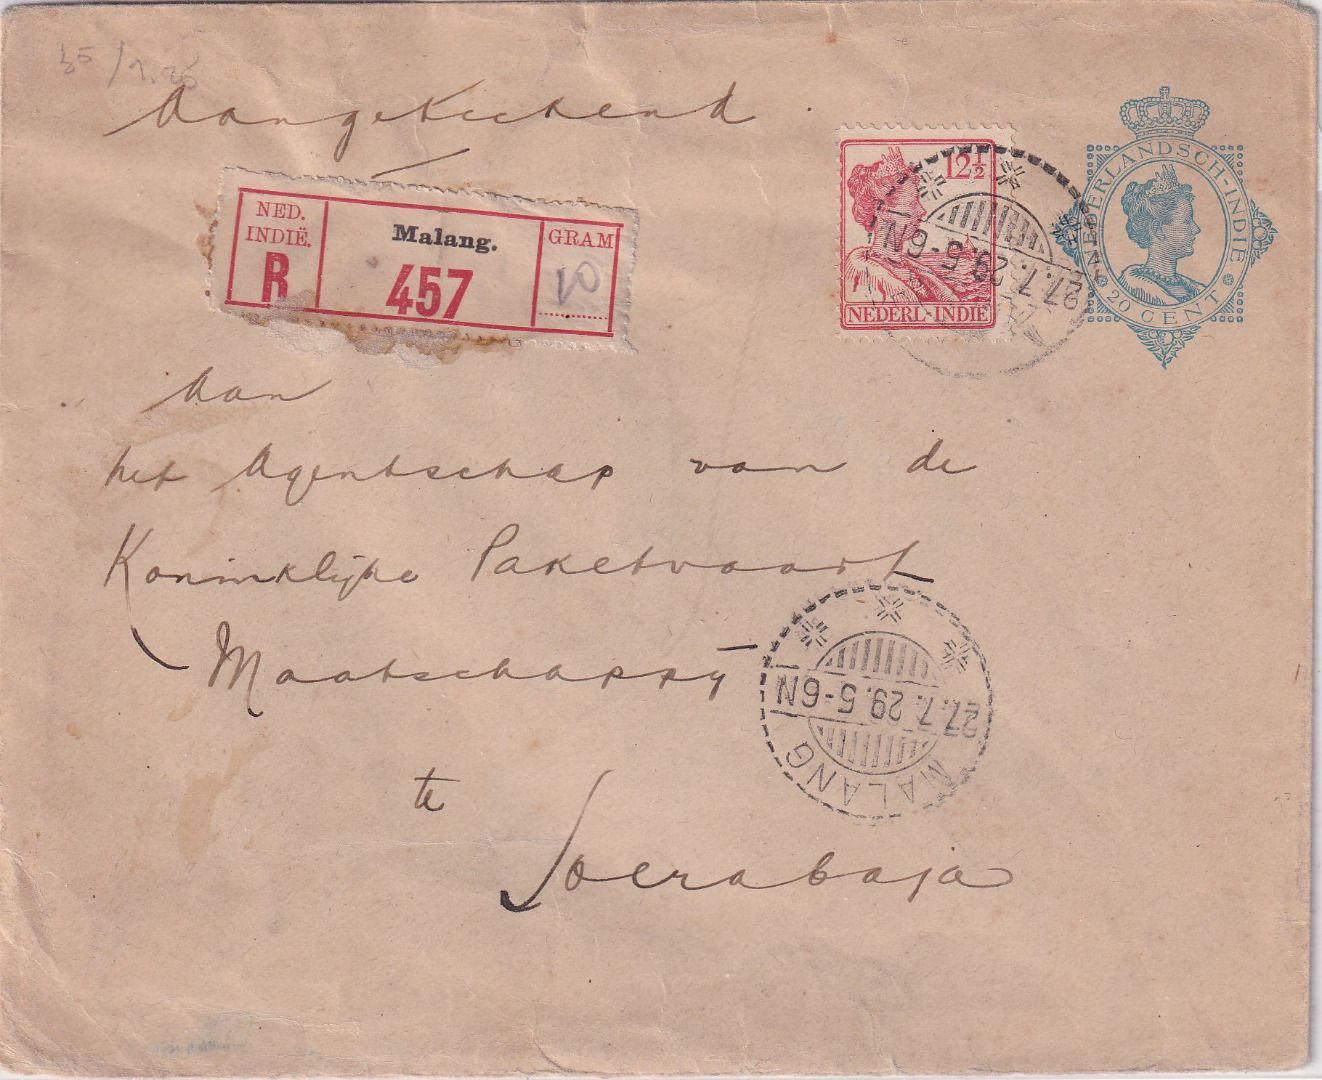 Aangetekend
NED. INDIË.
R
Malang.
457
GRAM
10
12½
NEDERL-INDIE
27.7.29.5-6N
NEDERLANDSCH-INDIE
20 CENT
Aan
het Agentschap van de
Koninklijke Paketvaart
Maatschappij
27.7.29.5-6N
MALANG
te
Soerabaja